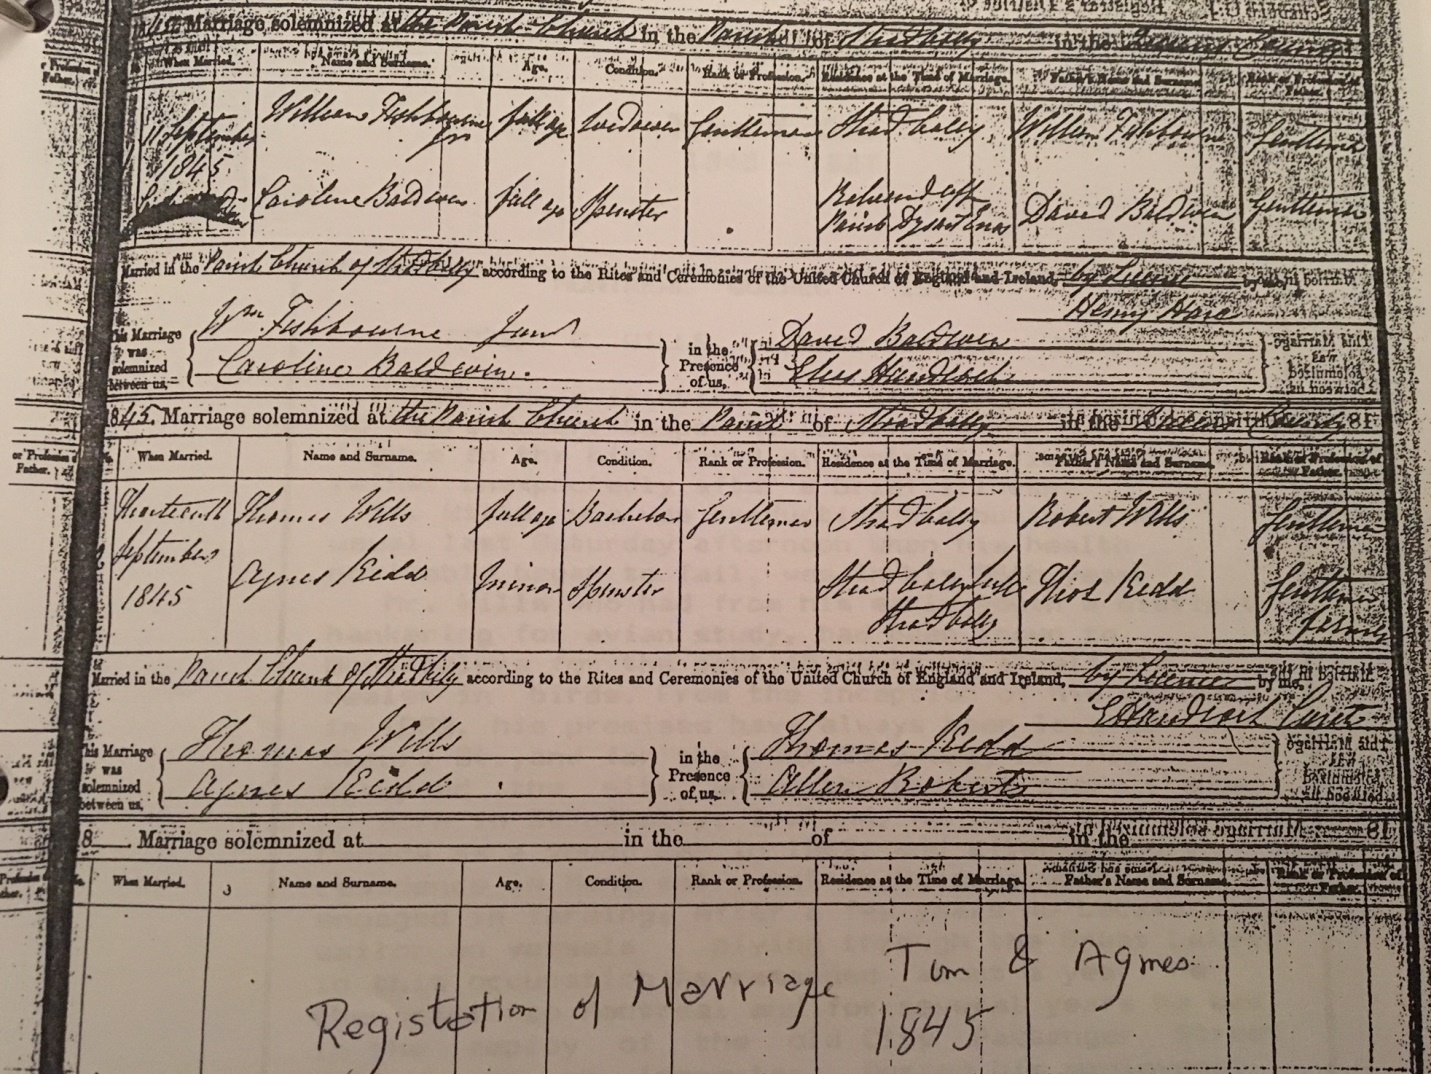 1845. Marriage solemnized at the Parish Church in the Parish of Stradbally in the Queens County
When Married. Name and Surname. Age. Condition. Rank or Profession. Residence at the Time of Marriage. Father's Name and Surname. Rank or Profession of Father.
11 September 1845 William Fishbourne Jr full age widower Gentleman Stradbally William Fishbourne Gentleman
Caroline Baldwin full age Spinster Parish Dysart Enos David Baldwin Gentleman
Married in the Parish Church of Stradbally according to the Rites and Ceremonies of the United Church of England and Ireland, by License by me,
Henry Hare
This Marriage was solemnized between us, Wm Fishbourne Junr Caroline Baldwin. in the Presence of us, David Baldwin
1845. Marriage solemnized at the Parish Church in the Parish of Stradbally in the Queens County
or Profession of Father. When Married. Name and Surname. Age. Condition. Rank or Profession. Residence at the Time of Marriage. Father's Name and Surname. Rank or Profession of Father.
Thirteenth September 1845 Thomas Wills full age Bachelor Gentleman Stradbally Robert Wills Gentleman
Agnes Kidd minor Spinster Stradbally Thos Kidd Gentleman farmer
Married in the Parish Church of Stradbally according to the Rites and Ceremonies of the United Church of England and Ireland, by License by me,
Curate
This Marriage was solemnized between us, Thomas Wills Agnes Kidd in the Presence of us, Thomas Kidd Allen Roberts
18 Marriage solemnized at in the of in the
When Married. Name and Surname. Age. Condition. Rank or Profession. Residence at the Time of Marriage. Father's Name and Surname. Rank or Profession of Father.
Registation of Marriage Tom & Agnes
1845